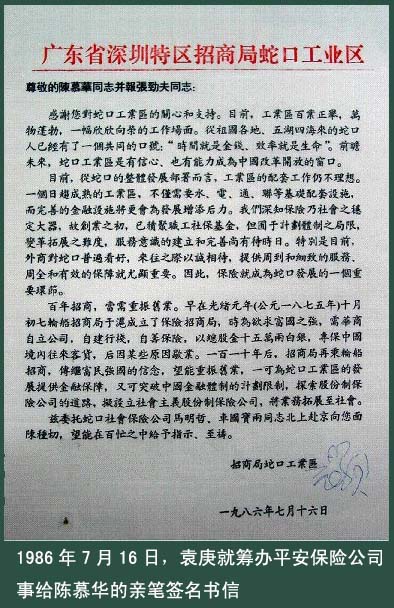 广东省深圳特区招商局蛇口工业区
尊敬的陳慕華同志并報張勁夫同志:
感謝您對蛇口工業區的關心和支持。目前，工業區百業正舉，萬
物蓬勃，一幅欣欣向榮的工作場面。從祖國各地、五湖四海來的蛇口
人已經有了一個共同的口號:“時間就是金錢、效率就是生命”。前瞻
未來，蛇口工業區是有信心、也有能力成為中國改革開放的窗口。
目前，從蛇口的整體發展部署而言，工業區的配套工作仍不理想。
一個日趨成熟的工業區，不僅需要水、電、通、聯等基礎配套設施，
而完善的金融設施將更會為發展增添后力。我們深知保險乃社會之穩
定大器，故創業之初，已積聚職工社保基金，但囿于計劃體制之局限，
變革拓展之難度，服務意識的建立和完善尚有待時日。特別是目前，
外商對蛇口普遍看好，來往之際以誠相待，提供周到和細致的服務、
周全和有效的保障就尤顯重要。因此，保險就成為蛇口發展的一個重
要環節。
百年招商，當需重振舊業。早在光緒元年(公元一八七五年)十月
初七輪船招商局于滬成立了保險招商局，時為欲求富國之強，需華商
自立公司，自建行棧，自籌保險，以總股金十五萬兩白銀，專保中國
境內往來客貨，后因某些原因歇業。一百一十年后，招商局再乘輪船
招商，傳繼富民強國的信念，望能重振舊業，一可為蛇口工業區的發
展提供金融保障，又可突破中國金融體制的計劃限制，探索股份制保
險公司的道路，擬設立社會主義股份制保險公司，將業務拓展至全社會。
茲委托蛇口社會保險公司馬明哲、車國寶兩同志北上赴京向您面
陳種切，望能在百忙之中給予指示。至祷。
招商局蛇口工業區
一九八六年七月十六日
1986年7月16日，袁庚就筹办平安保险公司
事给陈慕华的亲笔签名书信